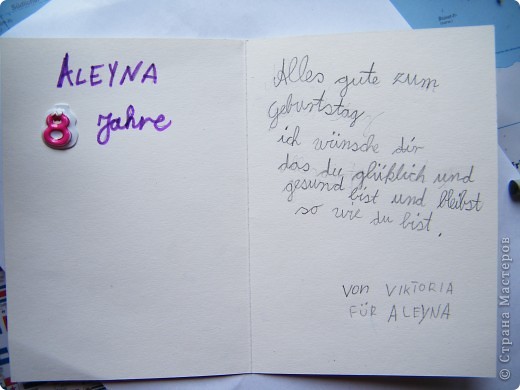 ALEYNA
8 Jahre
Alles gute zum
geburtstag
ich wünsche dir
das du glüklich und
gesund bist und bleibst
so wie du bist.
von VIKTORIA
FÜR ALEYNA
© Страна Мастеров